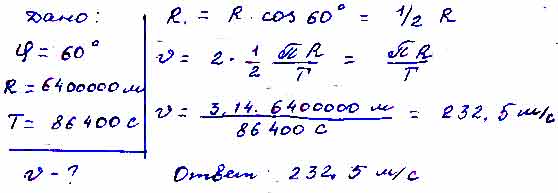 Дано:
φ = 60°
R = 6400000 м
T = 86400 с
v - ?
R₁ = R · cos 60° = 1/2 R
v = 2 · 1/2 πR/T = πR/T
v = 3,14 · 6400000 м / 86400 с = 232,5 м/с
Ответ: 232,5 м/с